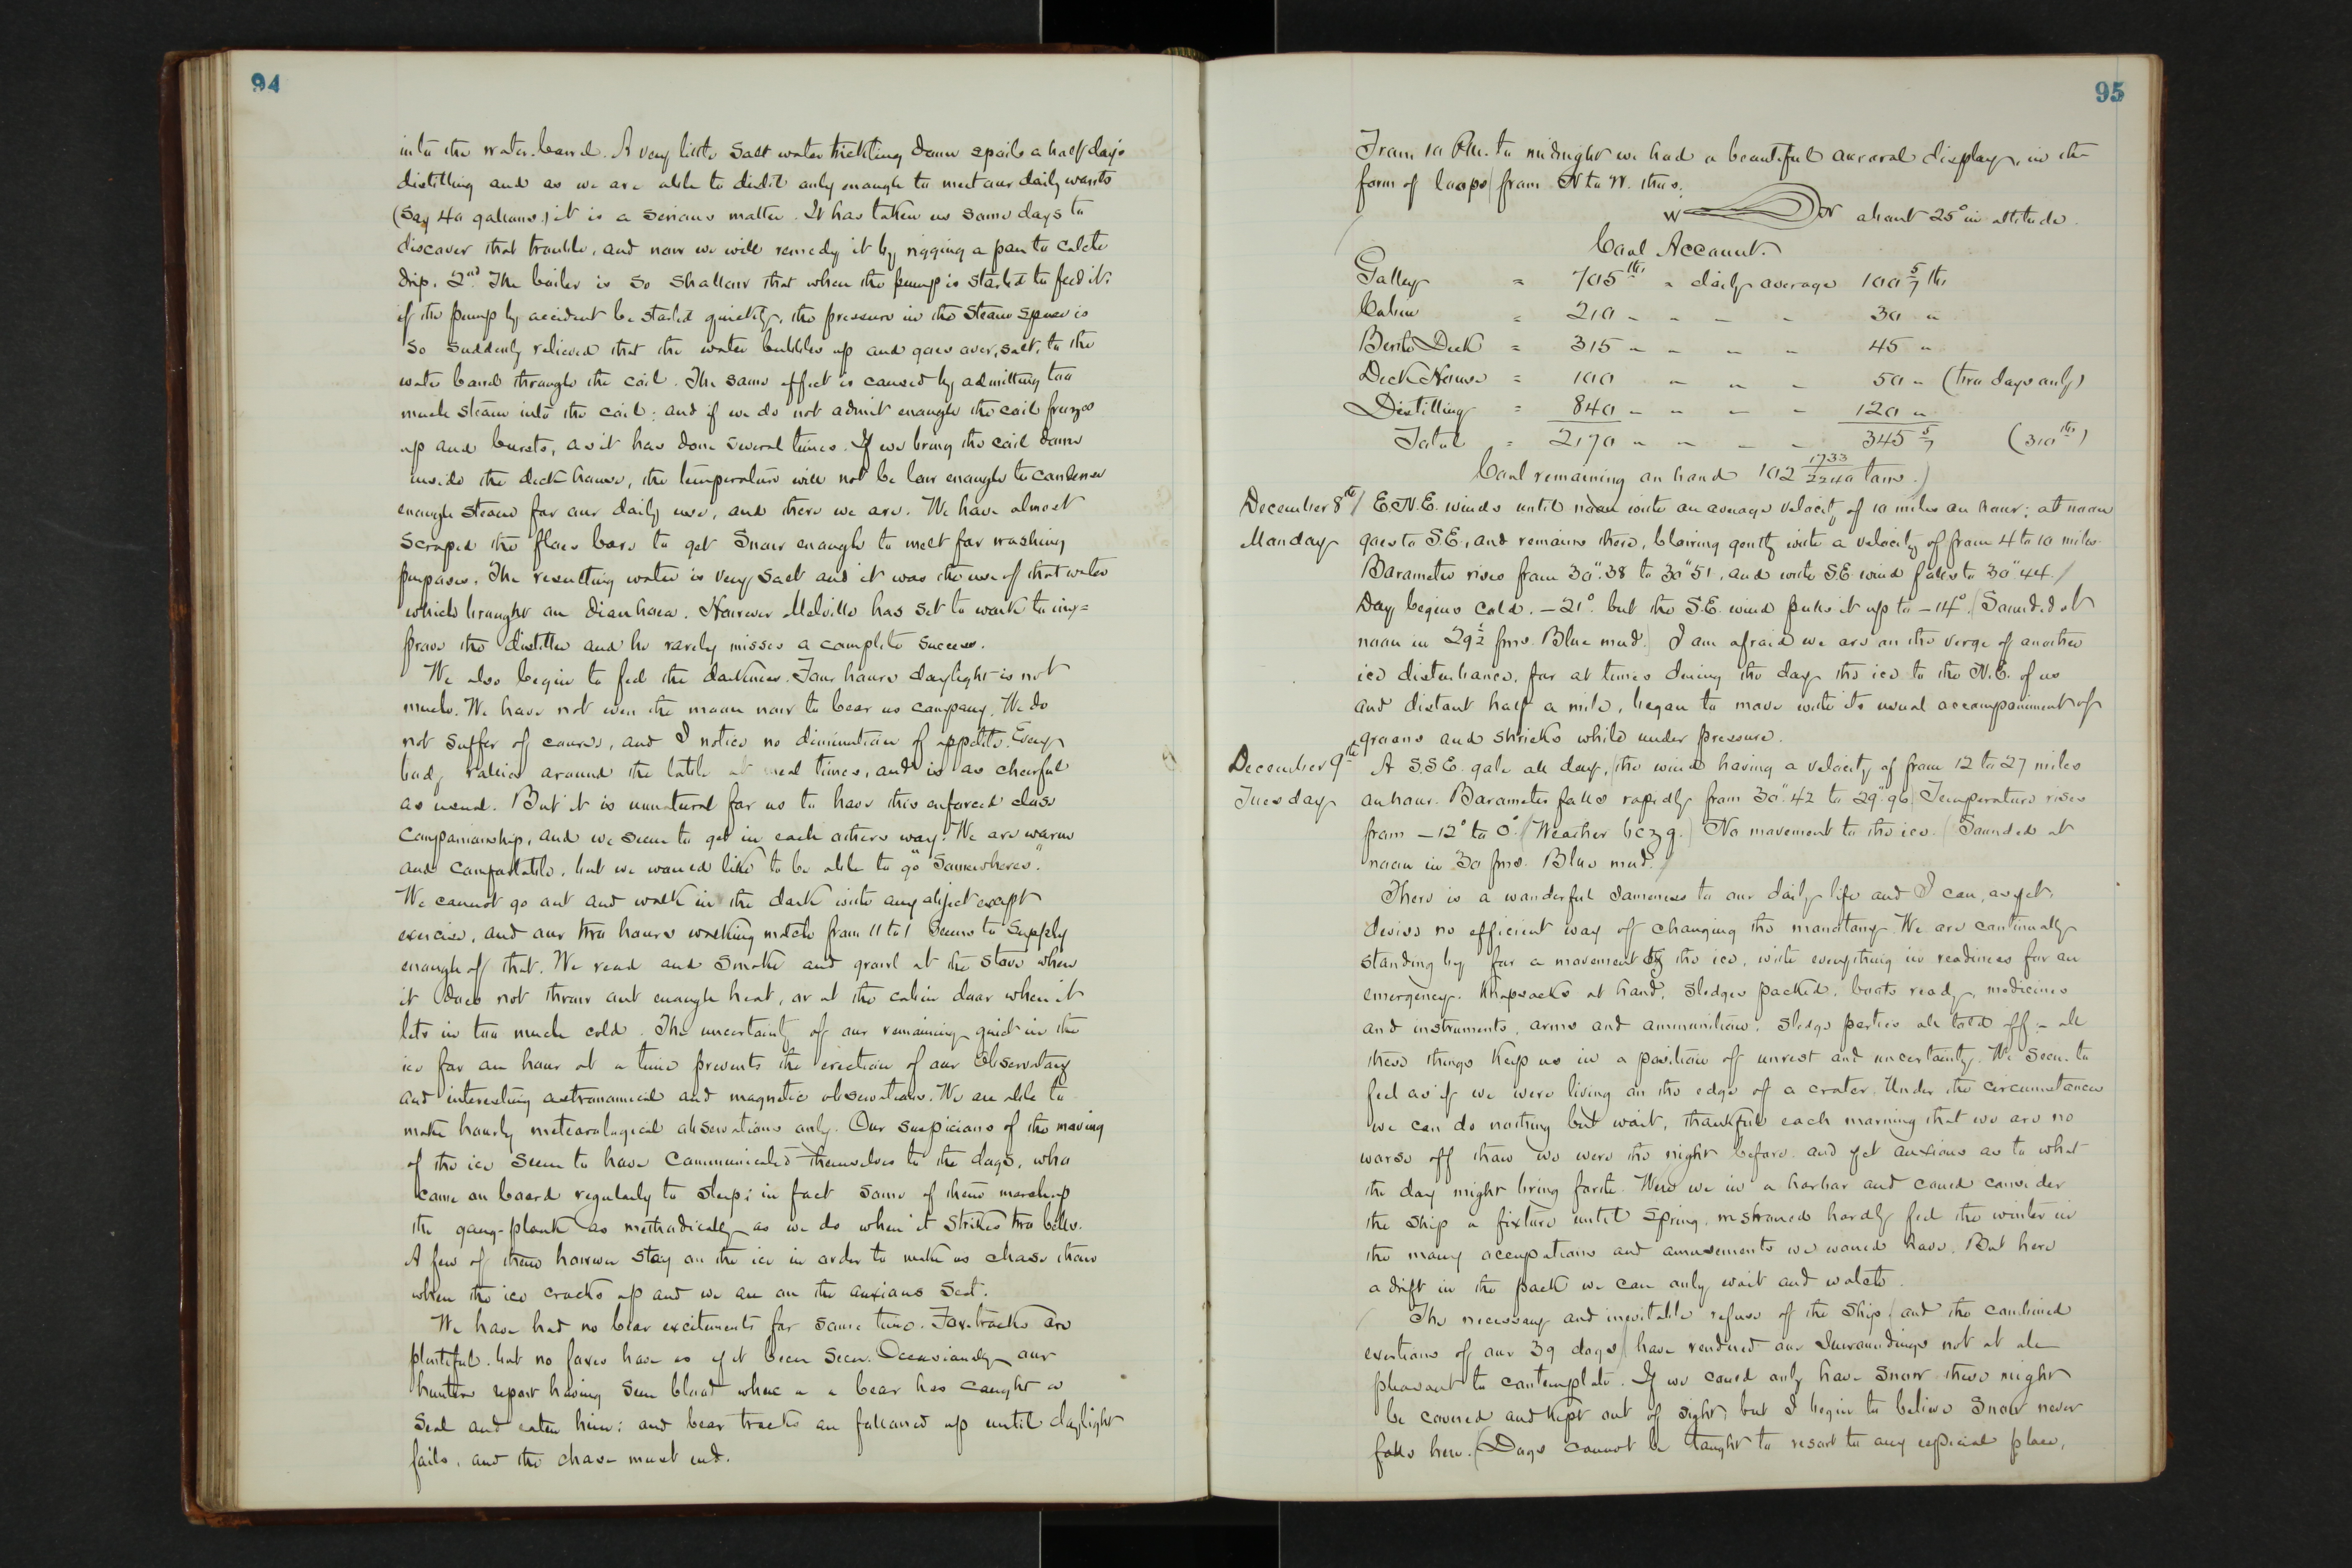 94
into the water-barrel. A very little salt water trickling down spoils a half day's
distilling and as we are able to distil only enough to meet our daily wants
(say 40 gallons) it is a serious matter. It has taken us some days to
discover that trouble, and now we will remedy it by rigging a pan to catch
drip. 2nd The boiler is so shallow that when the pump is started to feed it,
if the pump by accident be started quickly, the pressure in the steam space is
so suddenly relieved that the water bubbles up and goes over, salt, to the
water barrel through the coil. The same effect is caused by admitting too
much steam into the coil: and if we do not admit enough the coil freezes
up and bursts, as it has done several times. If we bring the coil down
inside the deck house, the temperature will not be low enough to condense
enough steam for our daily use, and there we are. We have almost
scraped the floes bare to get snow enough to melt for washing
purposes. The resulting water is very salt and it was the use of that water
which brought on diarrhoea. However Melville has set to work to im=
prove the distiller and he rarely misses a complete success.
We also begin to feel the darkness. Four hours daylight is not
much. We have not even the moon now to bear us company. We do
not suffer of course, and I notice no diminution of appetite. Every
body rallies around the table at meal times, and is as cheerful
as usual. But it is unnatural for us to have this enforced close
companionship, and we seem to get in each others way. We are warm
and comfortable, but we would like to be able to go "somewheres".
We cannot go out and walk in the dark with any object except
exercise, and our two hours walking match from 11 to 1 seems to supply
enough of that. We read and smoke and growl at the stove when
it does not throw out enough heat, or at the cabin door when it
lets in too much cold. The uncertainty of our remaining quiet in the
ice for an hour at a time prevents the erection of our Observatory
and interesting astronomical and magnetic observations. We are able to
make hourly meteorological observations only. Our suspicions of the moving
of the ice seem to have communicated themselves to the dogs, who
come on board regularly to sleep; in fact some of them march up
the gang-plank as methodically as we do when it strikes two bells.
A few of them however stay on the ice in order to make us chase them
when the ice cracks up and we are on the anxious seat.
We have had no bear excitements for some time. Fox tracks are
plentiful, but no foxes have as yet been seen. Occasionally our
hunters report having seen blood where a bear has caught a
seal and eaten him: and bear tracks are followed up until daylight
fails, and the chase must end.
95
From 10 P.M. to midnight we had a beautiful auroral display, in the
form of loops from N to W. thus.
W N about 25° in altitude.
Coal Account.
Galley = 705 lbs " daily average 100 5/7 lbs
Cabin = 210 " " " " 30 "
Berth Deck = 315 " " " " 45 "
Deck House = 100 " " " 50 " (two days only)
Distilling = 840 " " " " 120 "
Total = 2170 " " " " 345 5/7 (310 lbs)
Coal remaining on hand 102 1733/2240 tons.
December 8th E.N.E. winds until noon with an average velocity of 10 miles an hour; at noon
Monday goes to S.E. and remains there, blowing gently with a velocity of from 4 to 10 miles.
Barometer rises from 30".38 to 30".51, and with S.E. wind falls to 30".44.
Day begins cold. -21°. but the S.E. wind pulls it up to -14°. (Sounded at
noon in 29½ fms. Blue mud.) I am afraid we are on the verge of another
ice disturbance, for at times during the day the ice to the N.E. of us
and distant half a mile, began to move with its usual accompaniment of
groans and shrieks while under pressure.
December 9th A S.S.E. gale all day, the wind having a velocity of from 12 to 27 miles
Tuesday an hour. Barometer falls rapidly from 30".42 to 29".96. Temperature rises
from -12° to 0°. (Weather b c z q.) No movement to the ice. (Sounded at
noon in 30 fms. Blue mud.)
There is a wonderful sameness to our daily life and I can, as yet,
devise no efficient way of changing the monotony. We are continually
standing by for a movement of the ice, with everything in readiness for an
emergency. Knapsacks at hand, sledges packed, boats ready, medicines
and instruments, arms and ammunition, sledge parties all told off - all
these things keep us in a position of unrest and uncertainty. We seem to
feel as if we were living on the edge of a crater. Under the circumstances
we can do nothing but wait, thankful each morning that we are no
worse off than we were the night before, and yet anxious as to what
the day might bring forth. Were we in a harbor and could consider
the ship a fixture until spring, we should hardly feel the winter in
the many occupations and amusements we would have. But here
adrift in the pack we can only wait and watch.
The necessary and inevitable refuse of the ship and the combined
exertions of our 39 dogs have rendered our surroundings not at all
pleasant to contemplate. If we could only have snow these might
be covered and kept out of sight, but I begin to believe snow never
falls here. (Dogs cannot be taught to resort to any especial place,